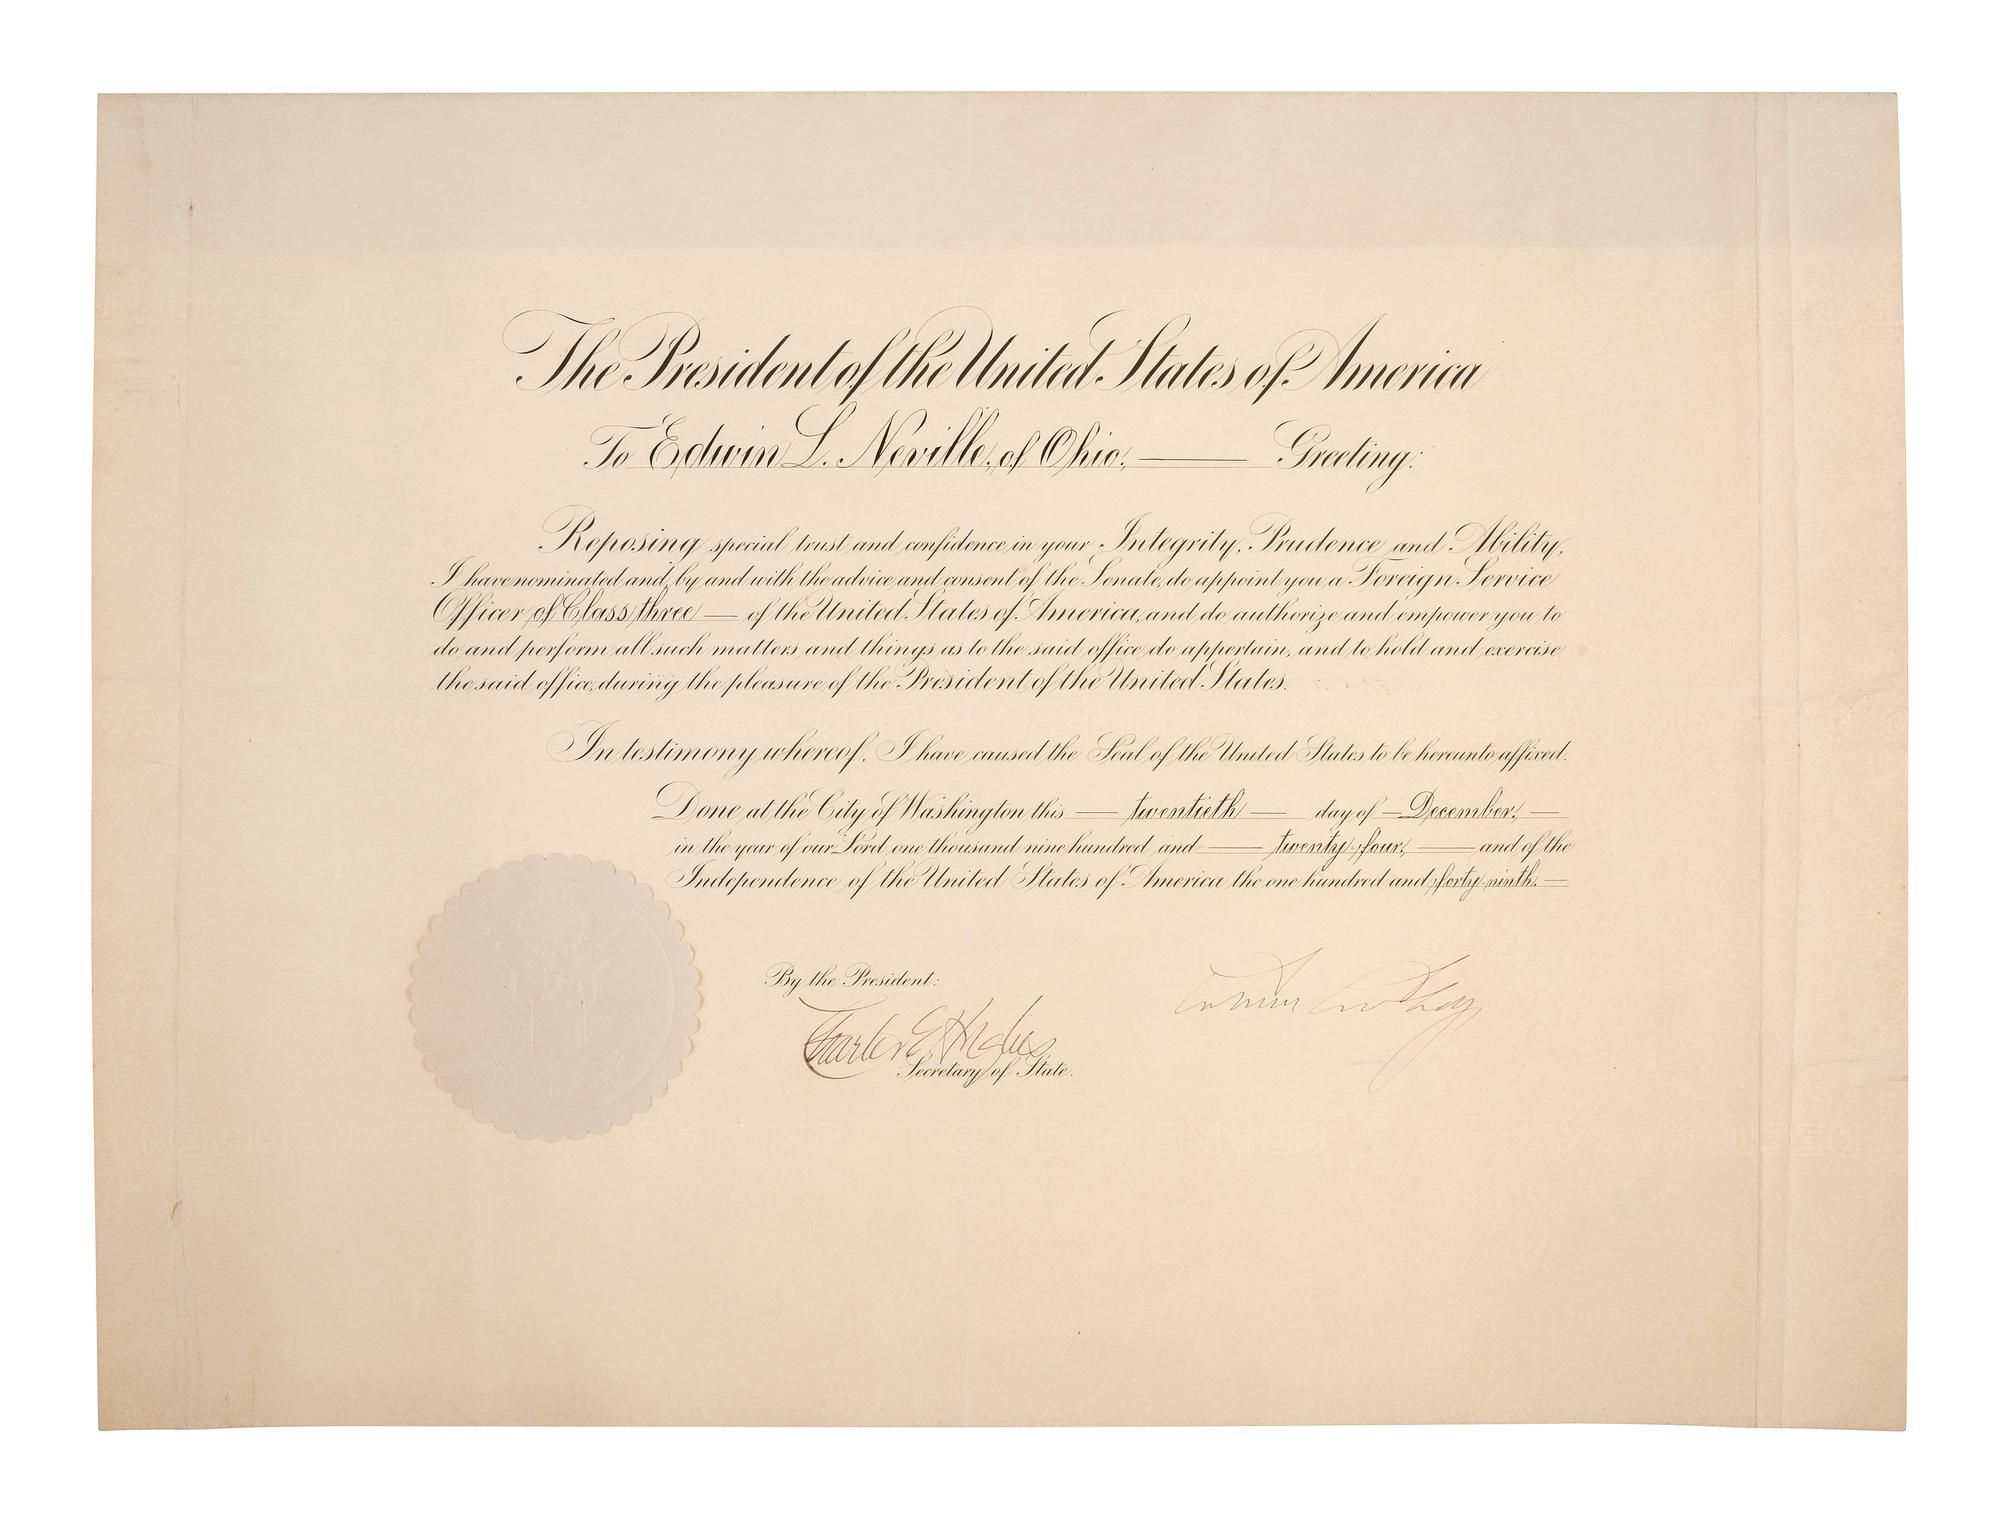 The President of the United States of America
To Edwin L. Neville, of Ohio, Greeting:
Reposing special trust and confidence in your Integrity, Prudence and Ability,
I have nominated and, by and with the advice and consent of the Senate, do appoint you a Foreign Service
Officer of Class three of the United States of America, and do authorize and empower you to
do and perform all such matters and things as to the said office do appertain, and to hold and exercise
the said office, during the pleasure of the President of the United States.
In testimony whereof, I have caused the Seal of the United States to be hereunto affixed.
Done at the City of Washington this twentieth day of December,
in the year of our Lord one thousand nine hundred and twenty-four, and of the
Independence of the United States of America the one hundred and forty-ninth.
By the President:
Charles E. Hughes
Secretary of State.